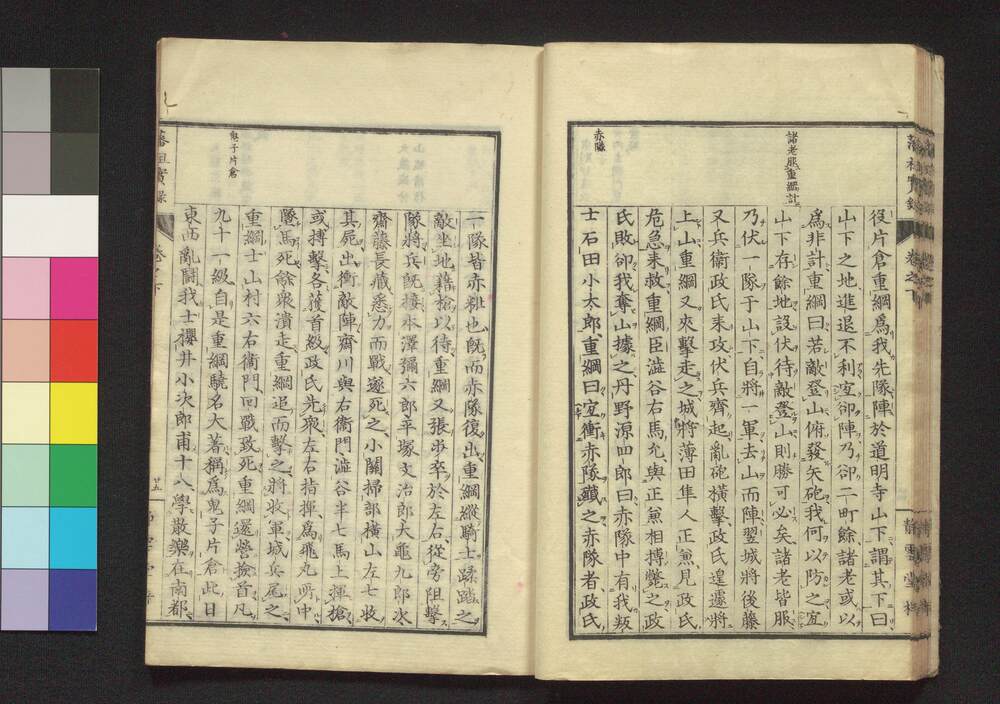 諸老服重綱計
赤隊
後片倉重綱爲我先隊陣於道明寺山下謂其下曰
山下之地進退不利宜卻陣乃卻二町餘諸老或以
爲非計重綱曰若敵登山俯發矢砲我何以防之宜
山下存餘地設伏待敵登山則勝可必矣諸老皆服
乃伏一隊于山下自將一軍去山而陣翌城將後藤
又兵衛政氏來攻伏兵齊起亂砲橫擊政氏遑遽將
上山重綱又夾擊走之城將薄田隼人正兼見政氏
危急來救重綱臣澁谷右馬允與正兼相搏斃之政
氏敗卻我奪山據之丹野源四郎曰赤隊中有我叛
士石田小太郎重綱曰宜衝赤隊殲之赤隊者政氏
鬼子片倉
一隊皆赤粧也旣而赤隊復出重綱縱騎士蹂踏之
敵坐地藉槍以待重綱又張步卒於左右從旁阻擊
隊將兵旣接本澤彌六郎平塚文治郎大龜九郎次
齋藤長藏悉力而戰遂死之小關掃部橫山左七收
其屍出衝敵陣齋川與右衞門澁谷半七馬上揮槍
或搏擊各獲首級政氏先衆左右指揮爲飛丸所中
墮馬死餘衆潰走重綱追而擊之將收軍城兵尾之
重綱士山村六右衞門回戰致死重綱還營撿首凡
九十一級自是重綱驍名大著稱爲鬼子片倉此日
東西亂鬪我士櫻井小次郎甫十八學散樂在南都
藩祖實錄
卷之下
廿五